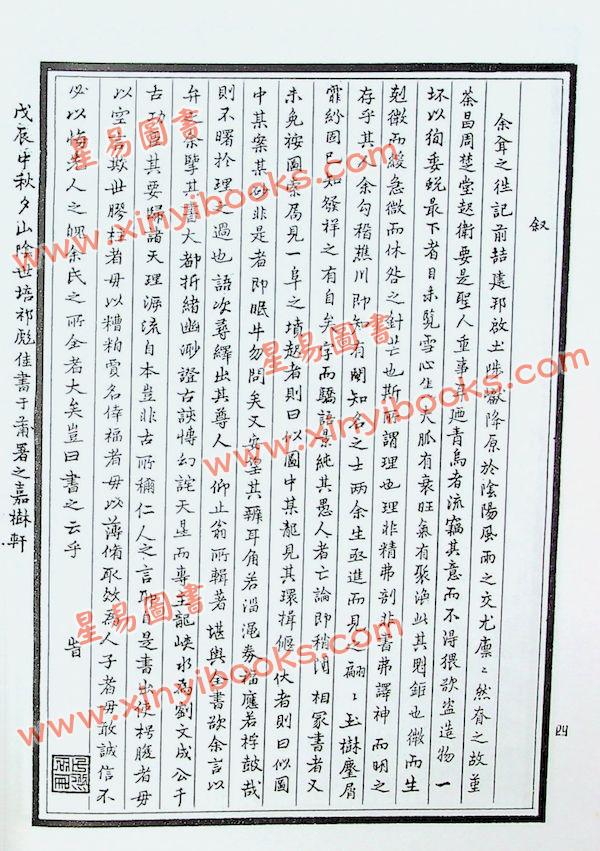 叙
余弇之徃記前喆建邦啟土陟巘降原於陰陽風雨之交尤凜〻然眷之故堇
荼昌周楚堂起衛要是聖人重事耳廼青烏者流竊其意而不得猥欲盜造物一
坏以徇委蛻最下者目未覧雪心生大脈有衰旺氣有聚渙此其則鉅也微而生
剋微而緩急微而休咎之針芒也斯所謂理也理非精弗剖非書弗譯神而明之
存乎其人余勾稽樵川即知有關知名之士两余生亟進而見之翩〻玉樹麈屑
霏紛固已知發祥之有自矣字而驕語景純其愚人者亡論即稍閱相冢書者又
未免按圖索馬見一阜之墳起者則曰似圖中某龍見其環揖偃伏者則曰似圖
中某案某砂非是者即眠牛勿問矣又安望其辨耳角若淄澠券福應若桴鼓哉
則不曙扵理之過也語次尋繹出其尊人仰止翁所輯著堪輿全書欲余言以
弁之余擘其書大都折緒幽渺證古談博幻詫天星而專主龍峽水為劉文成公千
古功其要歸諸天理源流自本豈非古所稱仁人之言自是書出使枵腹者毋
以空言欺世膠柱者毋以糟粕賣名倖福者毋以薄脩取效為人子者毋敢誠信不
必以悔先人之魄余氏之所全者大矣豈曰書之云乎 旹
戊辰中秋夕山陰世培祁彪佳書于莆署之嘉樹軒
星易圖書
www.xinyibooks.com
星易圖書
www.xinyibooks.com
星易圖書
www.xinyibooks.com